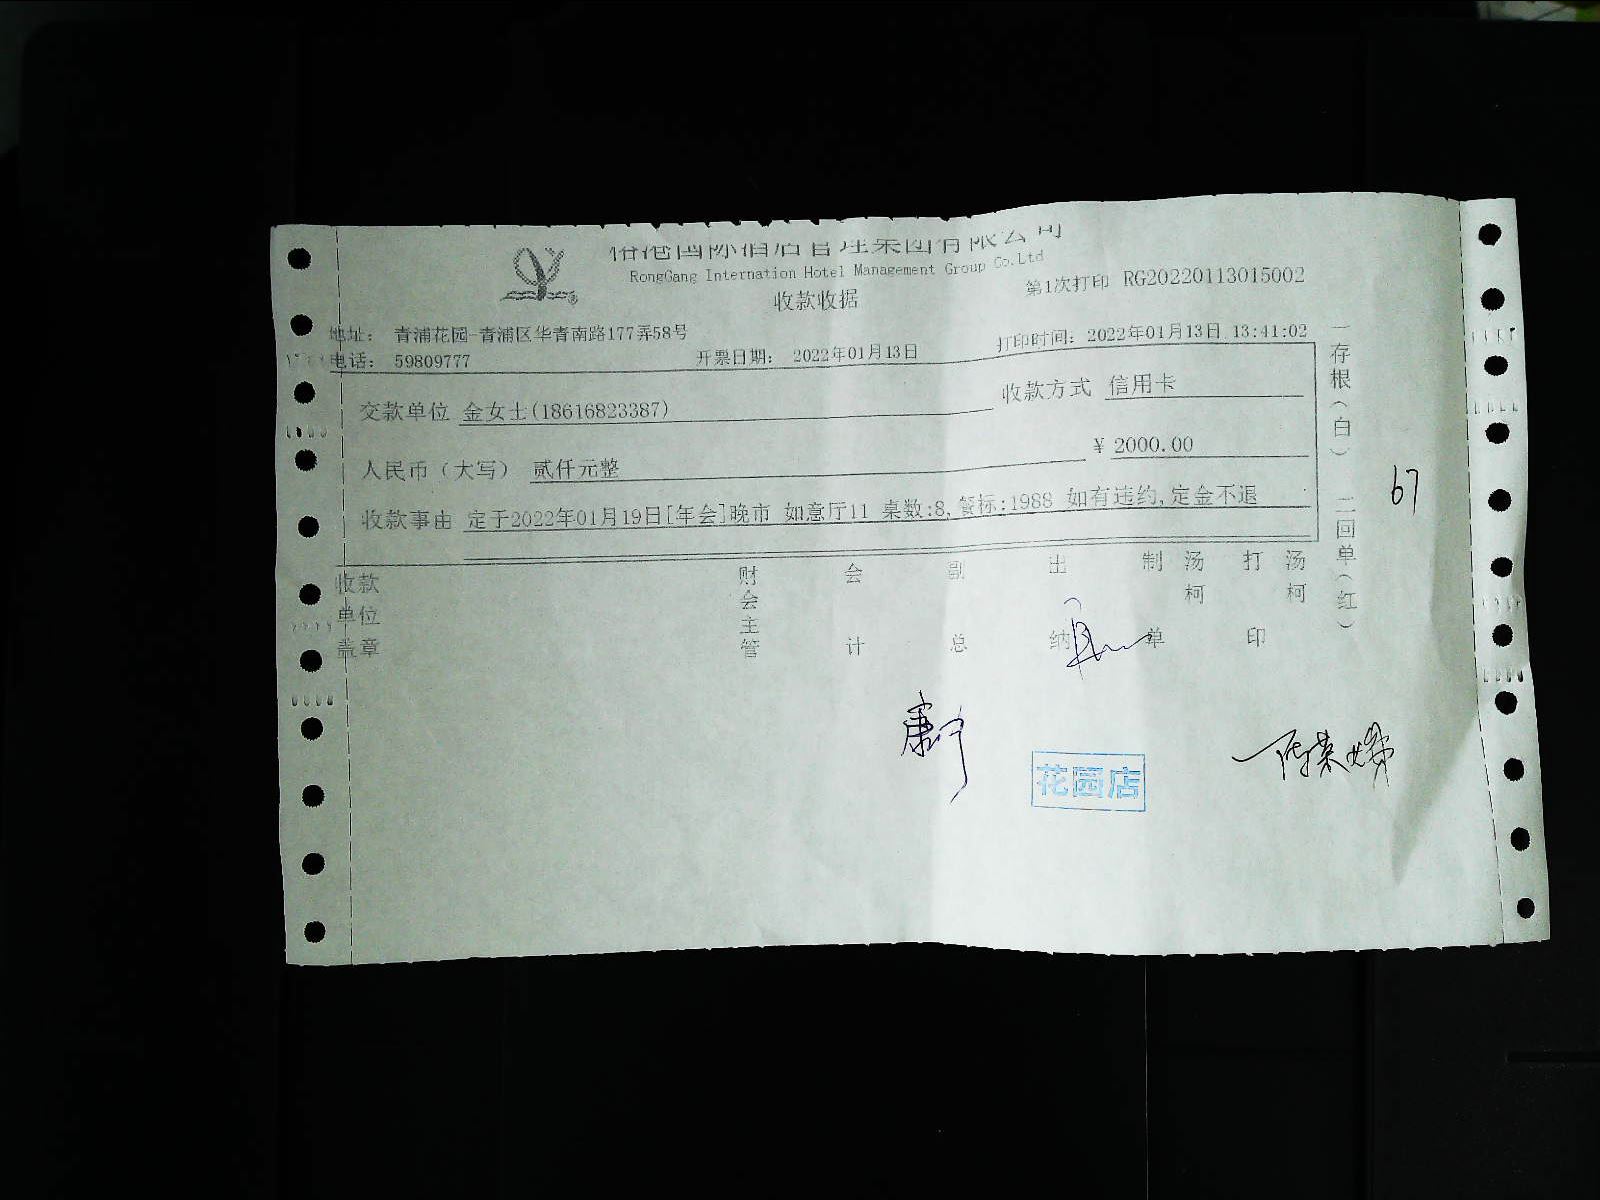 国际酒店管理集团有限公司
RongGang Internation Hotel Management Group Co.Ltd
收款收据
第1次打印 RG20220113015002
地址: 青浦花园-青浦区华青南路177弄58号
电话: 59809777
开票日期: 2022年01月13日
打印时间: 2022年01月13日 13:41:02
交款单位 金女士(18616823387)
收款方式 信用卡
人民币（大写） 贰仟元整
¥ 2000.00
收款事由 定于2022年01月19日[年会]晚市 如意厅11 桌数:8,餐标:1988 如有违约,定金不退
一存根（白） 二回单（红）
67
收款单位盖章
财会主管
会计
副总
出纳
制单
汤柯
打印
汤柯
花园店